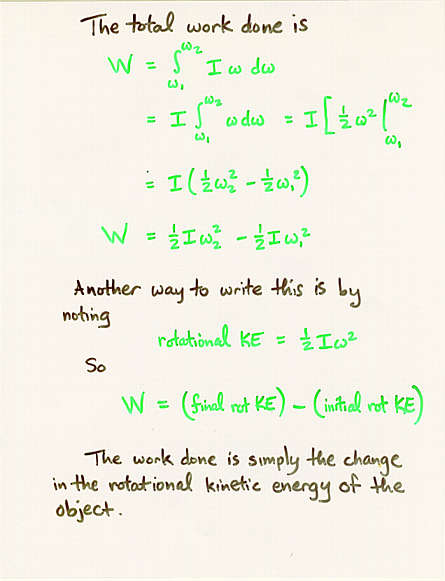 The total work done is
W = ∫_ω₁^ω₂ I ω dω
= I ∫_ω₁^ω₂ ω dω = I [ ½ ω² |_ω₁^ω₂
= I ( ½ ω₂² - ½ ω₁² )
W = ½ I ω₂² - ½ I ω₁²
Another way to write this is by
noting
rotational KE = ½ I ω²
So
W = (final rot KE) - (initial rot KE)
The work done is simply the change
in the rotational kinetic energy of the
object.